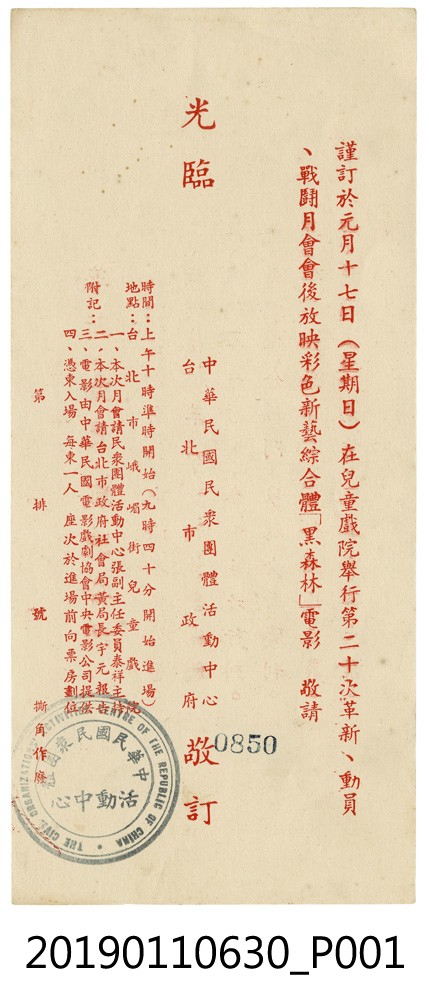 謹訂於元月十七日（星期日）在兒童戲院舉行第二十次革新、動員
、戰鬪月會會後放映彩色新藝綜合體「黑森林」電影 敬請
光臨
中華民國民衆團體活動中心
台北市政府
敬訂
0850
時間：上午十時準時開始（九時四十分開始進場）
地點：台北市峨嵋街兒童戲院
附記：
一、本次月會請民衆團體活動中心張副主任委員泰祥主持
二、本次月會請台北市政府社會局黃局長宇元報告
三、電影由中華民國電影戲劇協會中央電影公司提供
四、憑柬入場 每柬一人 座次於進場前向票房劃位
第 排 號 撕角作廢
中華民國民衆團體
活動中心
THE CIVIC ORGANIZATIONS ACTIVITIES CENTRE OF THE REPUBLIC OF CHINA
20190110630_P001